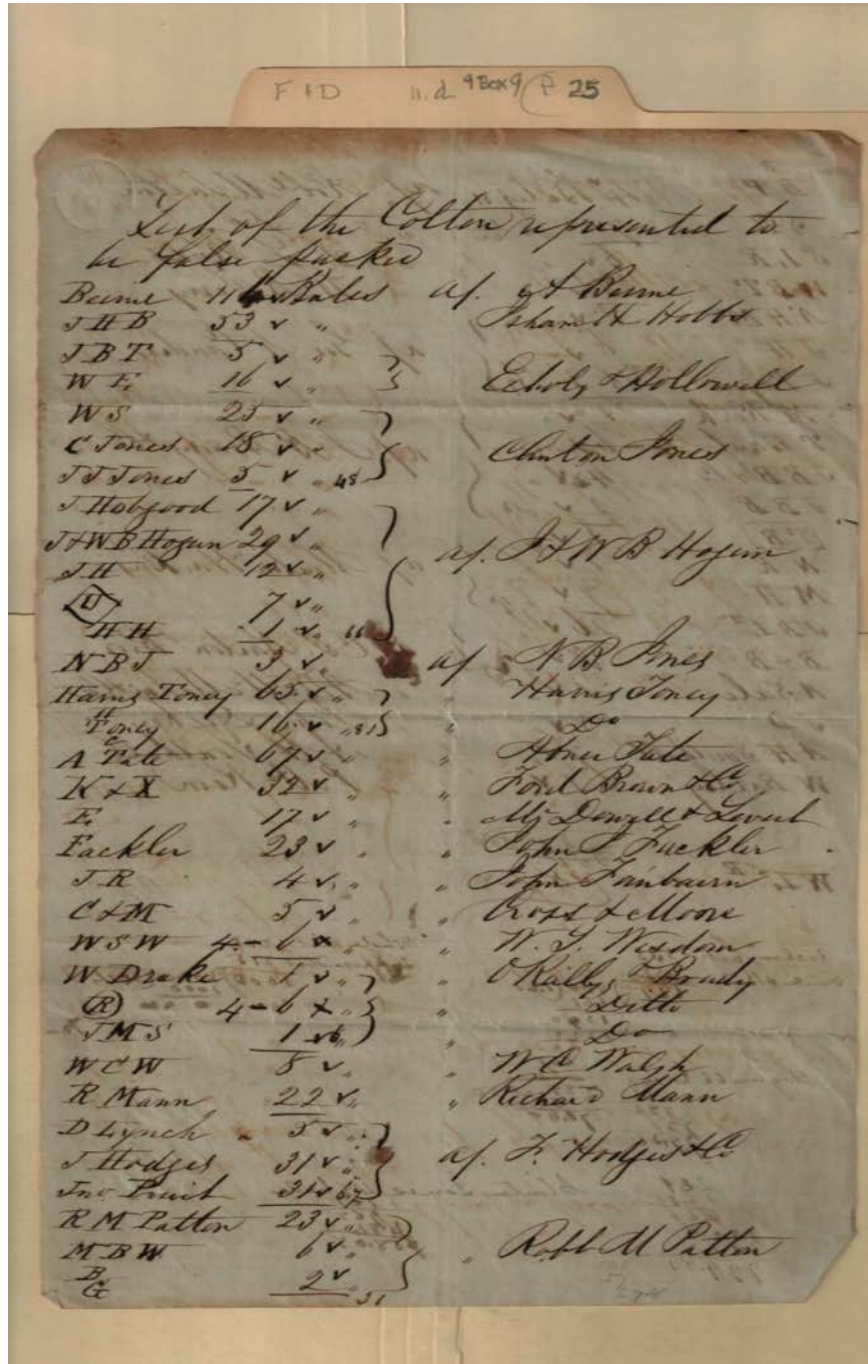 F & D n.d. Box 9 25
List of the Cotton represented to
be false packed
Beirne Bales a/. A Beirne
J H B 53 ✓ " Isham H Hobbs
J B T 5 ✓ "
W E 16 ✓ " Echols & Hollowell
W S 25 ✓ "
C Jones 18 ✓ " Clinton Jones
J J Jones 5 ✓ " 48
J Hobgood 17 ✓ "
J & W B Hogun 29 ✓ " a/. J & W B Hogun
J H 12 ✓ "
U 7 ✓ "
H H 1 ✓ " 66
N B J 3 ✓ " a/ N. B. Jones
Harris Toney 65 ✓ " " Harris Toney
Toney 16 ✓ " 81 " Do
A Tate 67 ✓ " " Abner Tate
K & X 32 ✓ " " Ford Brown & Co
E. 17 ✓ " " McDowell & Levert
Fackler 23 ✓ " " John J Fackler
J R 4 ✓ " " John Fairbairn
C & M 5 ✓ " " Cross & Moore
W S W 4 - 6 x " " W. S. Wisdom
W Drake 1 ✓ " " O'Railly & Brudy
R 4 - 6 x " " Ditto
J M S 1 ✓ 6 " " Do
W C W 8 ✓ " " W C Walsh
R Mann 22 ✓ " " Richard Mann
D Lynch 5 ✓ "
J Hodges 31 ✓ " a/. F. Hodges & Co
Jno. Pruit 31 ✓ 67
R M Patton 23 ✓ "
M B W 6 ✓ " " Robt M Patton
B G 2 ✓ " 31